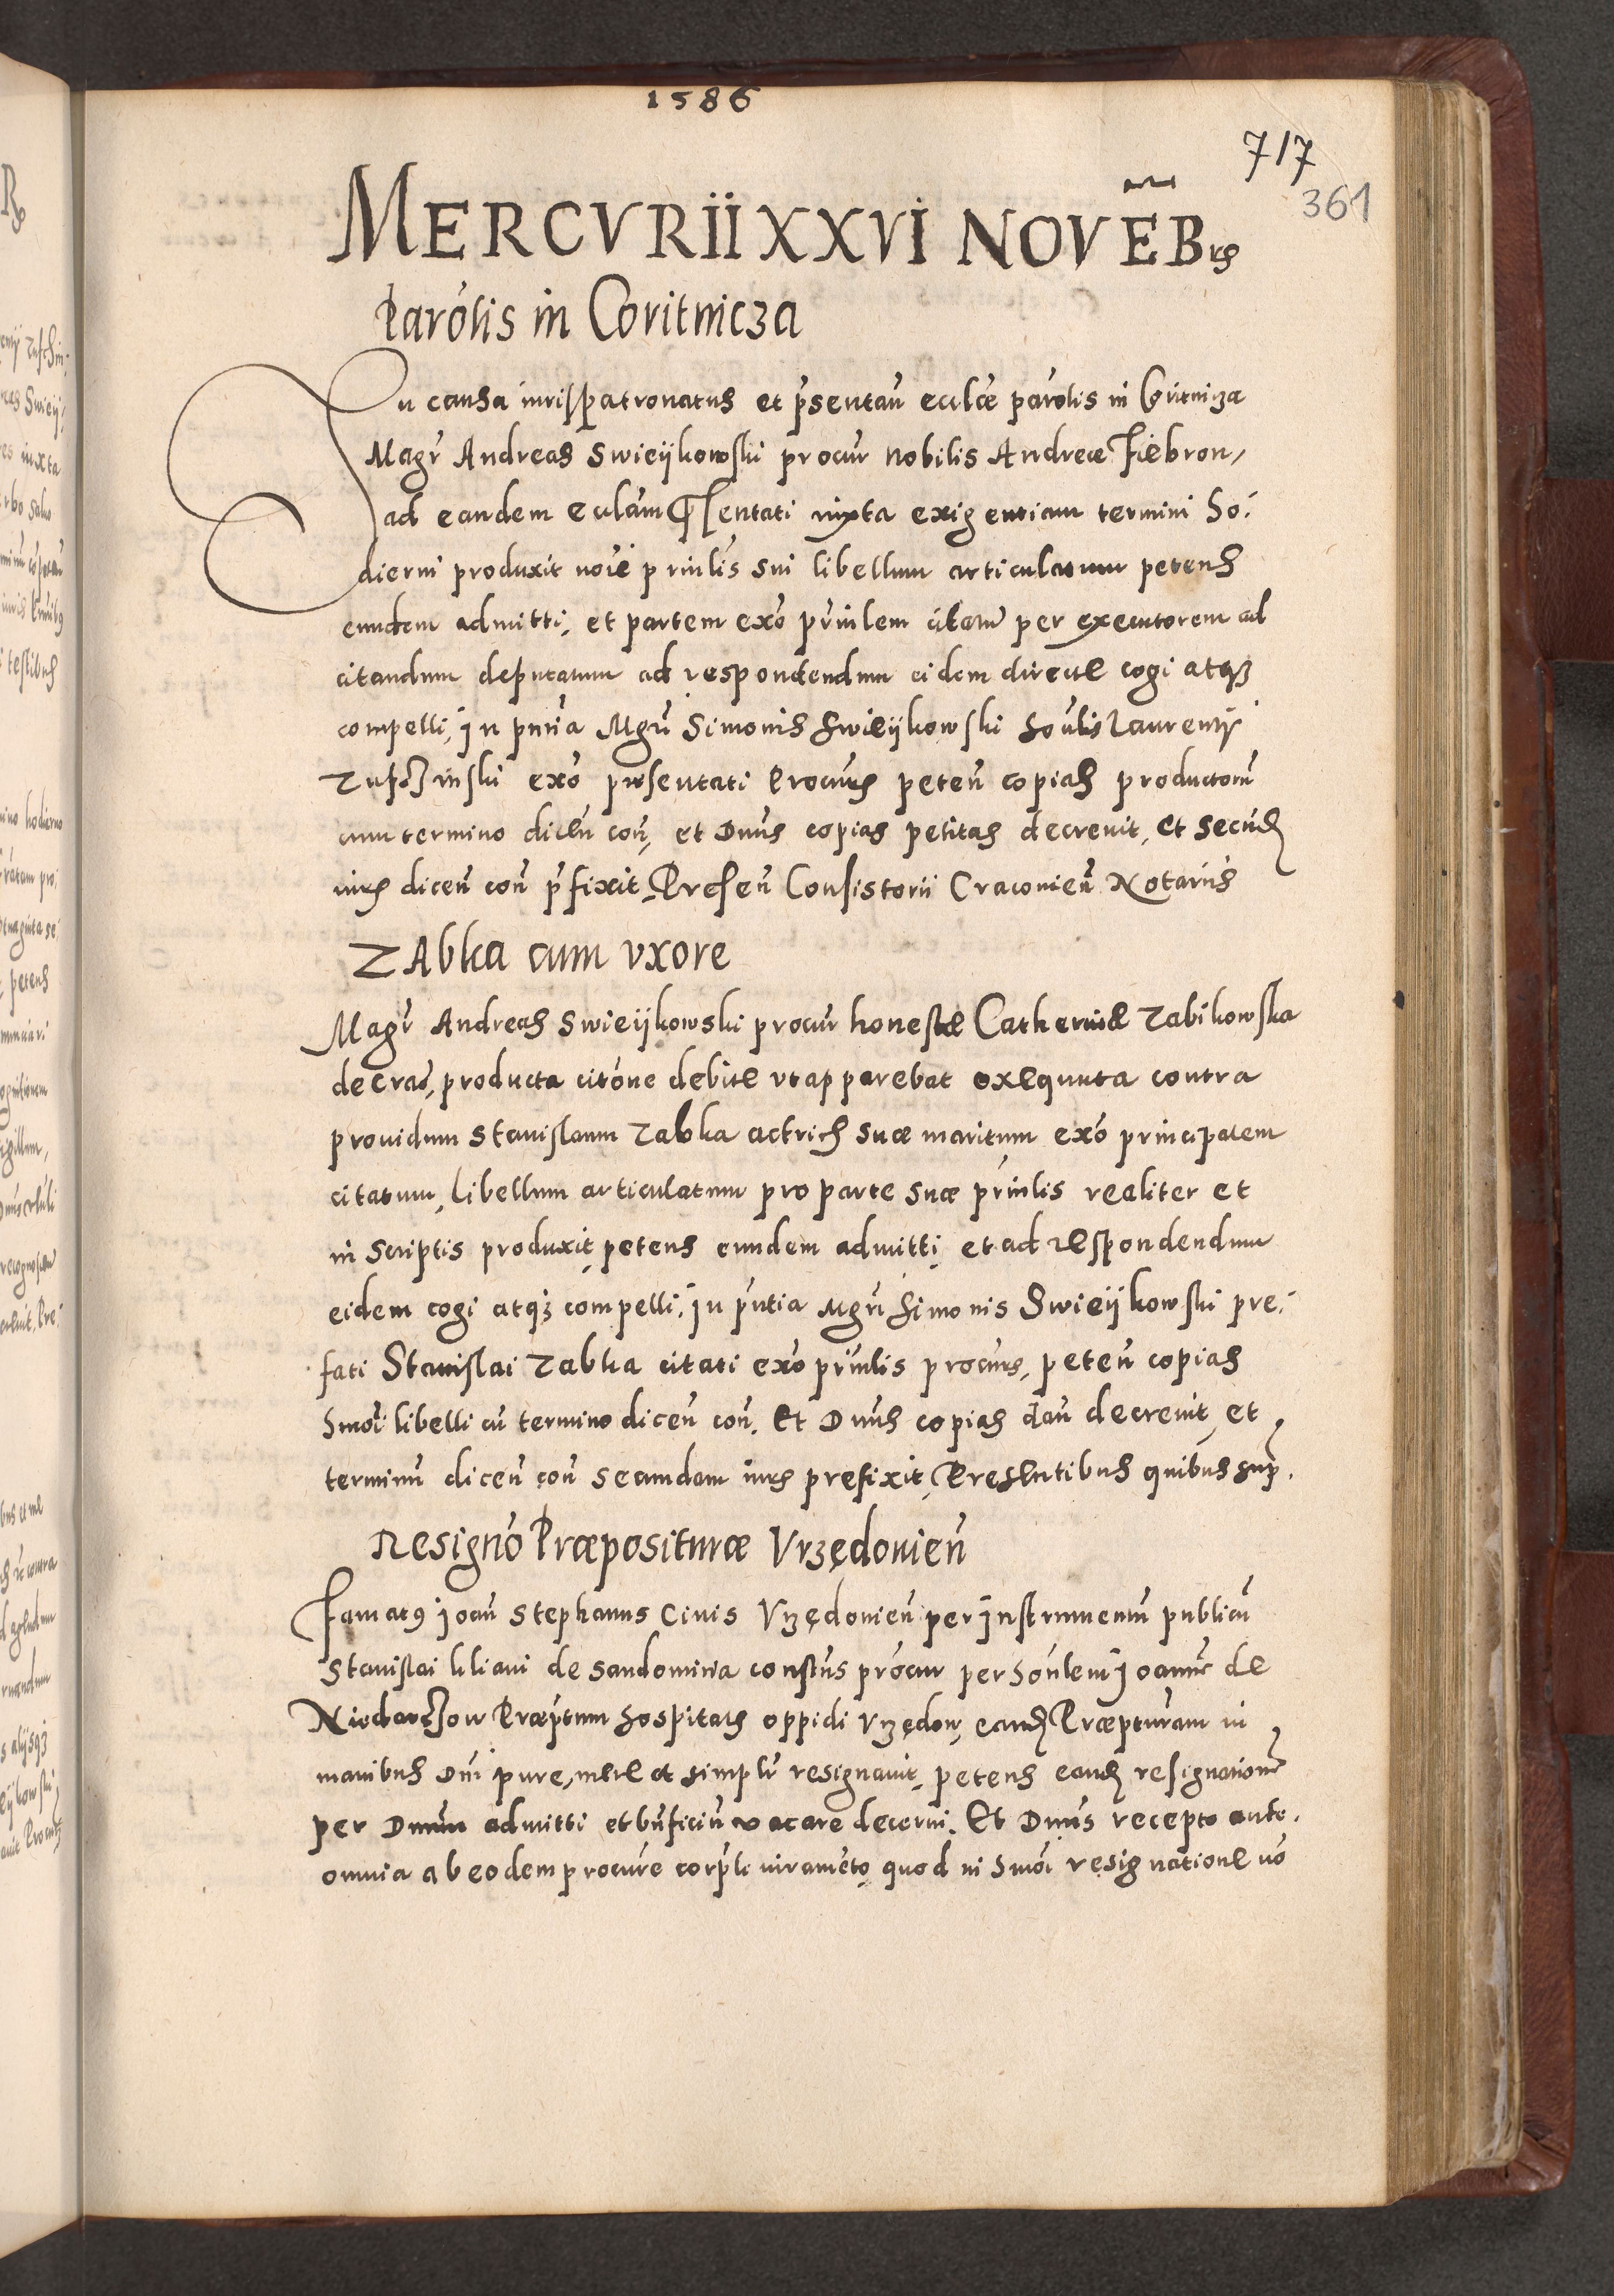 1586
717
361
MERCVRII XXVI NOVĒBrs
Parolis in Coritnicza
In causa iurispatronatus et p̄sentan̄ ecclæ parolis in Coritnicza
Magr̄ Andreas Swieijkowski procur nobilis Andreæ Fiebron,
ad eandem ecclam p̄sentati iuxta exigentiam termini ho,
dierni produxit noīe prinlis sui libellum articulatum petens
eundem admitti, et partem exo prinlem citatum per executorem ad
citandum deputatum ad respondendum eidem directe cogi atq3
compelli, in pn̄tia Mgri Simonis Swieijkowski honlis Laurentij
exo præsentati Procuris peten̄ copias productorū
cum termino dicen̄ con̄, et Dnus copias petitas decreuit, et secund
iuris dicen̄ con̄ p̄fixit. Presen̄ Consistorii Cracouien̄ Notarijs
ZAbka cum vxore
Magr̄ Andreas Swieijkowski procur honestæ Catherinæ Zabikowska
de Crac, producta citōne debite vt apparebat exequuta contra
prouidum Stanislaum Zabka actricis suæ maritum exo principalem
citatum, libellum articulatum pro parte suæ prinlis realiter et
in scriptis produxit petens eundem admitti, et ad respondendum
eidem cogi atq3 compelli, in pn̄tia Mgri Simonis Swieijkowski pre,
fati Stanislai Zabka citati exo prinlis procuris, peten̄ copias
hmōi libelli cū termino dicen̄ con̄. Et Dnus copias dan̄ decreuit, et
terminū dicen̄ con̄ secundum iuris prefixit, Presentibus quibus sup.
Resigno Præposituræ Vrzędouien̄
Famatus Ioan̄ Stephanus Ciuis Vrzędouien̄ per Instrumentū publicū
Stanislai liliani de Sandomiria constus procur per honlem Ioannē de
Præptum hospitalis oppidi Vrzędow, eand Præpturam in
manibus Dni pure, mere et simplr resignauit, petens eand resignationē
per Dnum admitti et bn̄ficiū vacare decerni. Et Dnus recepto ante
omnia ab eodem procure corp̄li iuramēto, quod in hmōi resignatione nō